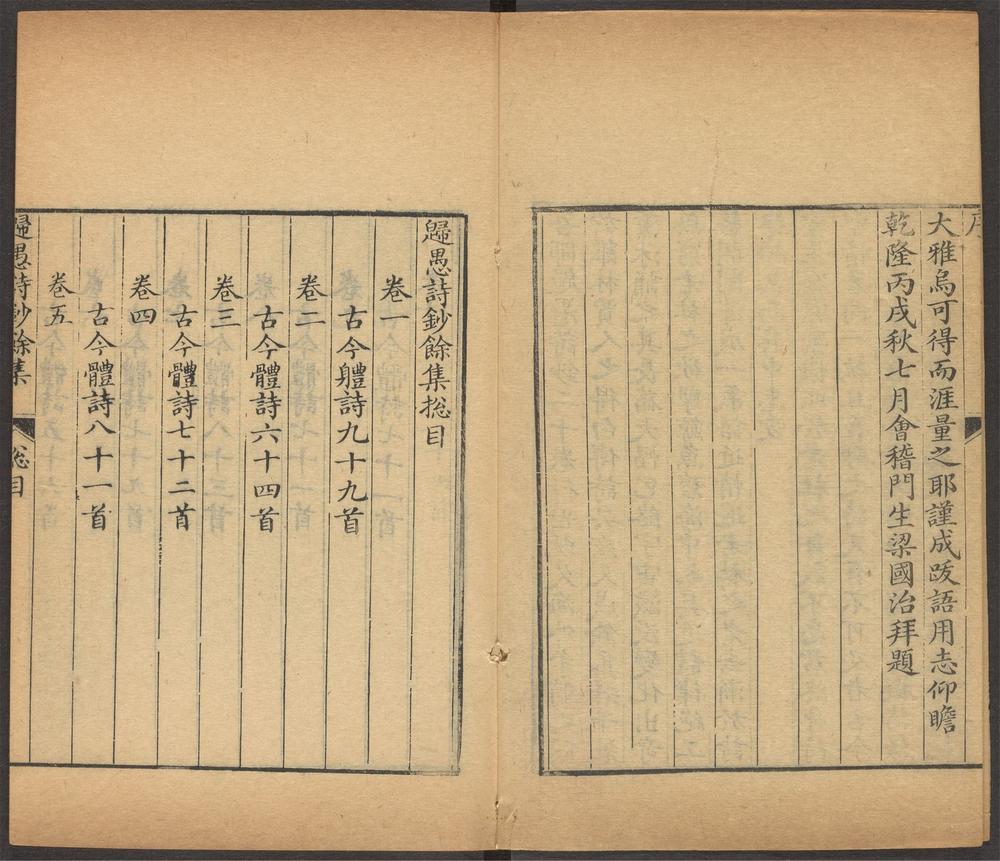 序
大雅烏可得而涯量之耶謹成跋語用志仰瞻
乾隆丙戌秋七月會稽門生梁國治拜題
歸愚詩鈔餘集捴目
卷一
古今體詩九十九首
卷二
古今體詩六十四首
卷三
古今體詩七十二首
卷四
古今體詩八十一首
卷五
歸愚詩鈔餘集
捴目